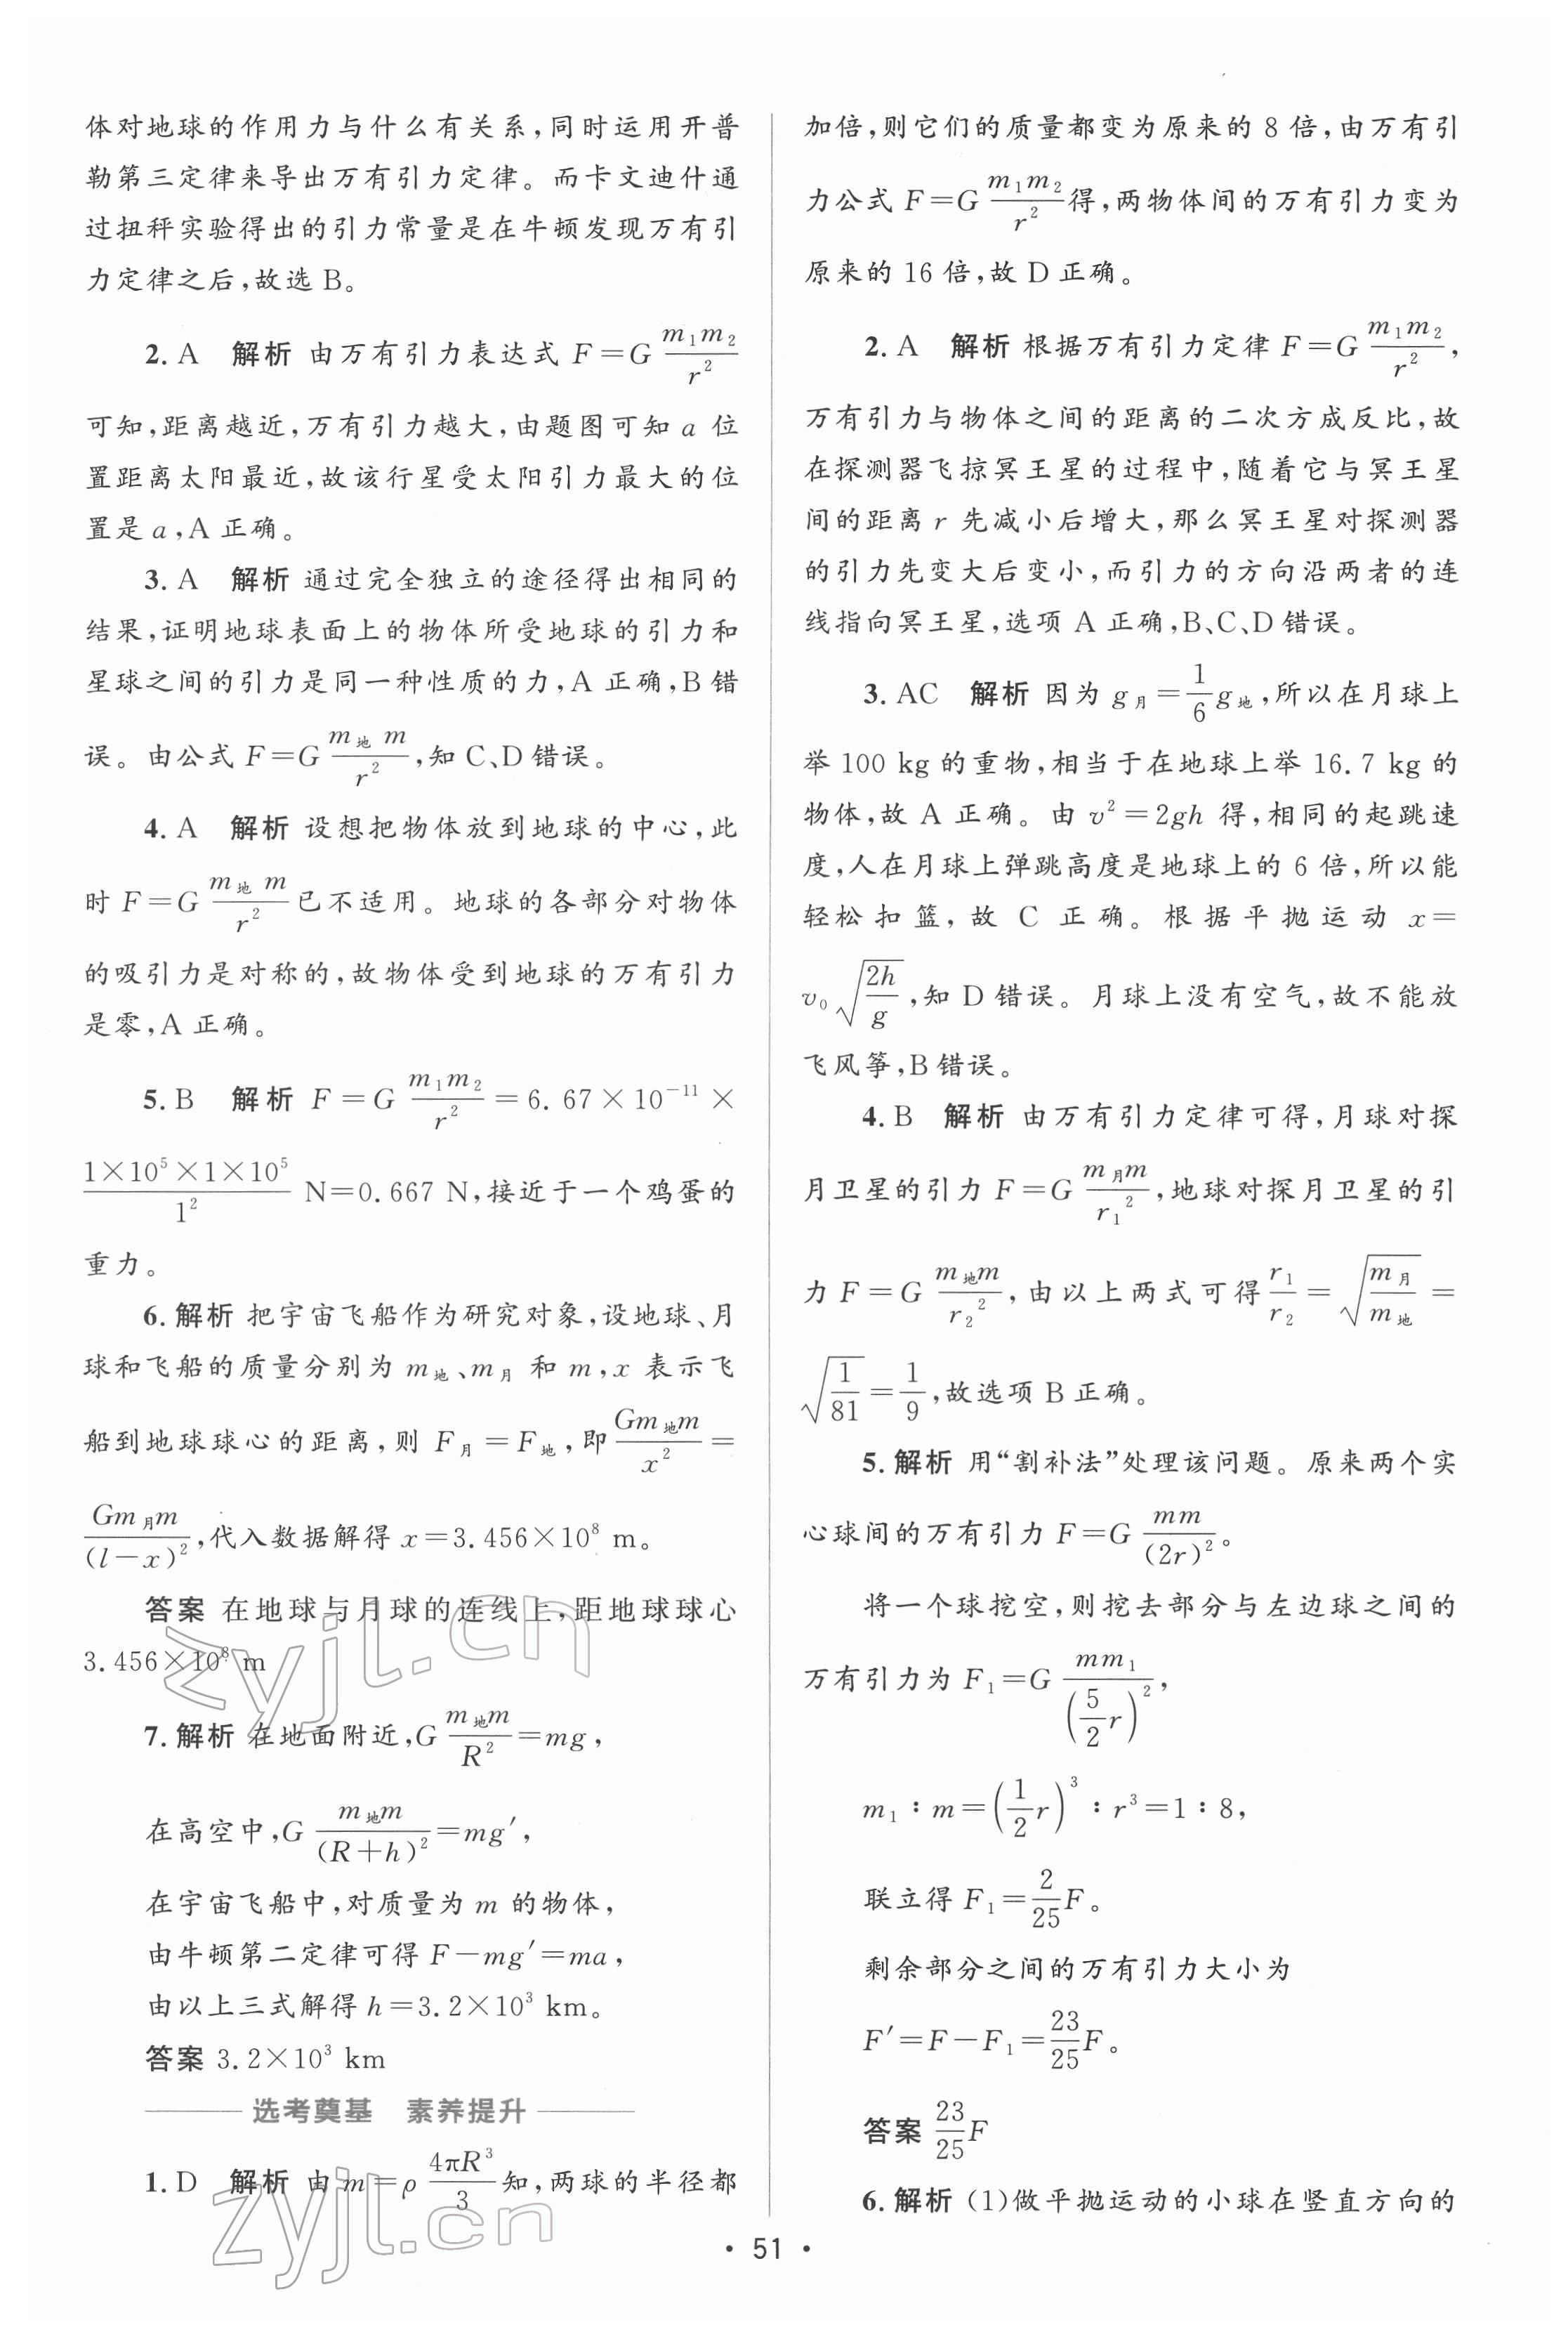 体对地球的作用力与什么有关系,同时运用开普
勒第三定律来导出万有引力定律。而卡文迪什通
过扭秤实验得出的引力常量是在牛顿发现万有引
力定律之后,故选 B。
2. A 解析 由万有引力表达式 F=G\frac{m_1m_2}{r^2}
可知,距离越近,万有引力越大,由题图可知 a 位
置距离太阳最近,故该行星受太阳引力最大的位
置是 a,A 正确。
3. A 解析 通过完全独立的途径得出相同的
结果,证明地球表面上的物体所受地球的引力和
星球之间的引力是同一种性质的力,A 正确,B 错
误。由公式 F=G\frac{m_地 m}{r^2},知 C、D 错误。
4. A 解析 设想把物体放到地球的中心,此
时 F=G\frac{m_地 m}{r^2}已不适用。地球的各部分对物体
的吸引力是对称的,故物体受到地球的万有引力
是零,A 正确。
5. B 解析 F=G\frac{m_1m_2}{r^2}=6.67×10^{-11}×
\frac{1×10^5×1×10^5}{1^2} N=0.667 N,接近于一个鸡蛋的
重力。
6. 解析 把宇宙飞船作为研究对象,设地球、月
球和飞船的质量分别为 m_地、m_月 和 m,x 表示飞
船到地球球心的距离,则 F_月=F_地,即\frac{Gm_地m}{x^2}=
\frac{Gm_月m}{(l-x)^2},代入数据解得 x=3.456×10^8 m。
答案 在地球与月球的连线上,距地球球心
3.456×10^8 m
7. 解析 在地面附近,G\frac{m_地m}{R^2}=mg,
在高空中,G\frac{m_地m}{(R+h)^2}=mg′,
在宇宙飞船中,对质量为 m 的物体,
由牛顿第二定律可得 F-mg′=ma,
由以上三式解得 h=3.2×10^3 km。
答案 3.2×10^3 km
选考奠基 素养提升
1. D 解析 由 m=ρ\frac{4πR^3}{3}知,两球的半径都
加倍,则它们的质量都变为原来的 8 倍,由万有引
力公式 F=G\frac{m_1m_2}{r^2}得,两物体间的万有引力变为
原来的 16 倍,故 D 正确。
2. A 解析 根据万有引力定律 F=G\frac{m_1m_2}{r^2},
万有引力与物体之间的距离的二次方成反比,故
在探测器飞掠冥王星的过程中,随着它与冥王星
间的距离 r 先减小后增大,那么冥王星对探测器
的引力先变大后变小,而引力的方向沿两者的连
线指向冥王星,选项 A 正确,B、C、D 错误。
3. AC 解析 因为 g_月=\frac{1}{6}g_地,所以在月球上
举 100 kg 的重物,相当于在地球上举 16.7 kg 的
物体,故 A 正确。由 v^2=2gh 得,相同的起跳速
度,人在月球上弹跳高度是地球上的 6 倍,所以能
轻松扣篮,故 C 正确。根据平抛运动 x=
v_0\sqrt{\frac{2h}{g}},知 D 错误。月球上没有空气,故不能放
飞风筝,B 错误。
4. B 解析 由万有引力定律可得,月球对探
月卫星的引力 F=G\frac{m_月m}{r_1^2},地球对探月卫星的引
力 F=G\frac{m_地m}{r_2^2},由以上两式可得\frac{r_1}{r_2}=\sqrt{\frac{m_月}{m_地}}=
\sqrt{\frac{1}{81}}=\frac{1}{9},故选项 B 正确。
5. 解析 用“割补法”处理该问题。原来两个实
心球间的万有引力 F=G\frac{mm}{(2r)^2}。
将一个球挖空,则挖去部分与左边球之间的
万有引力为 F_1=G\frac{mm_1}{(\frac{5}{2}r)^2},
m_1∶m=(\frac{1}{2}r)^3∶r^3=1∶8,
联立得 F_1=\frac{2}{25}F。
剩余部分之间的万有引力大小为
F′=F-F_1=\frac{23}{25}F。
答案 \frac{23}{25}F
6. 解析 (1)做平抛运动的小球在竖直方向的
· 51 ·
zyjl.cn
zyjl.cn